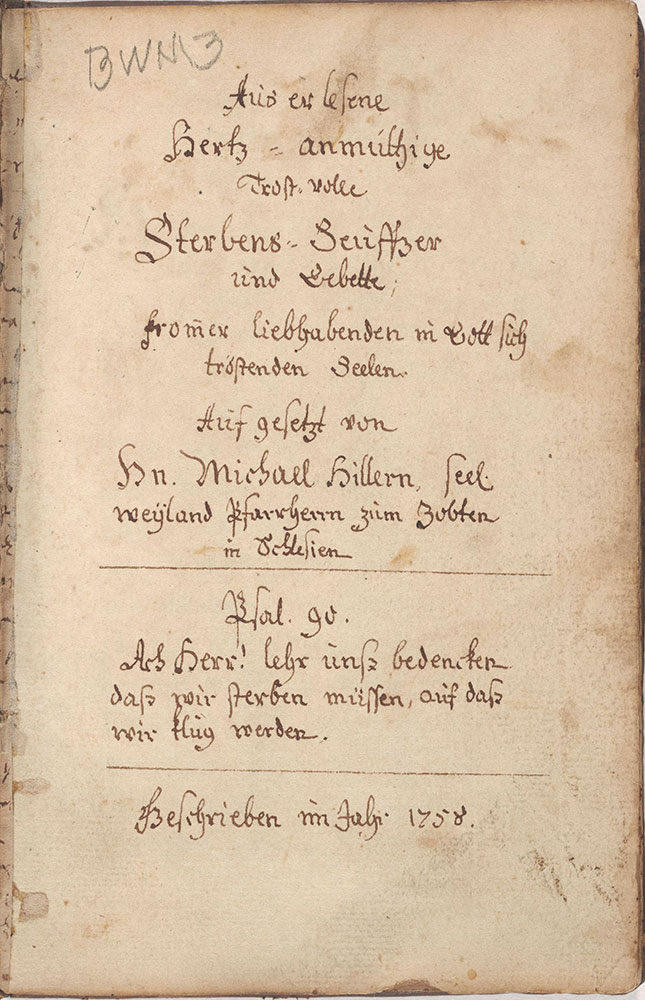 BWM3
Aus er lesene
Hertz = anmüthige
Trost-volle
Sterbens = Seüffzer
und Gebette,
from̅er liebhabenden in Gott sich
tröstenden Seelen.
Auf gesetzt von
Hn. Michael Hillern, seel.
weÿland Pfarrherrn zum Zobten
in Schlesien
Psal. 90.
Ach Herr! lehr unsz bedencken
dasz wir sterben müssen, auf dasz
wir klug werden.
Geschrieben im Jahr 1758.